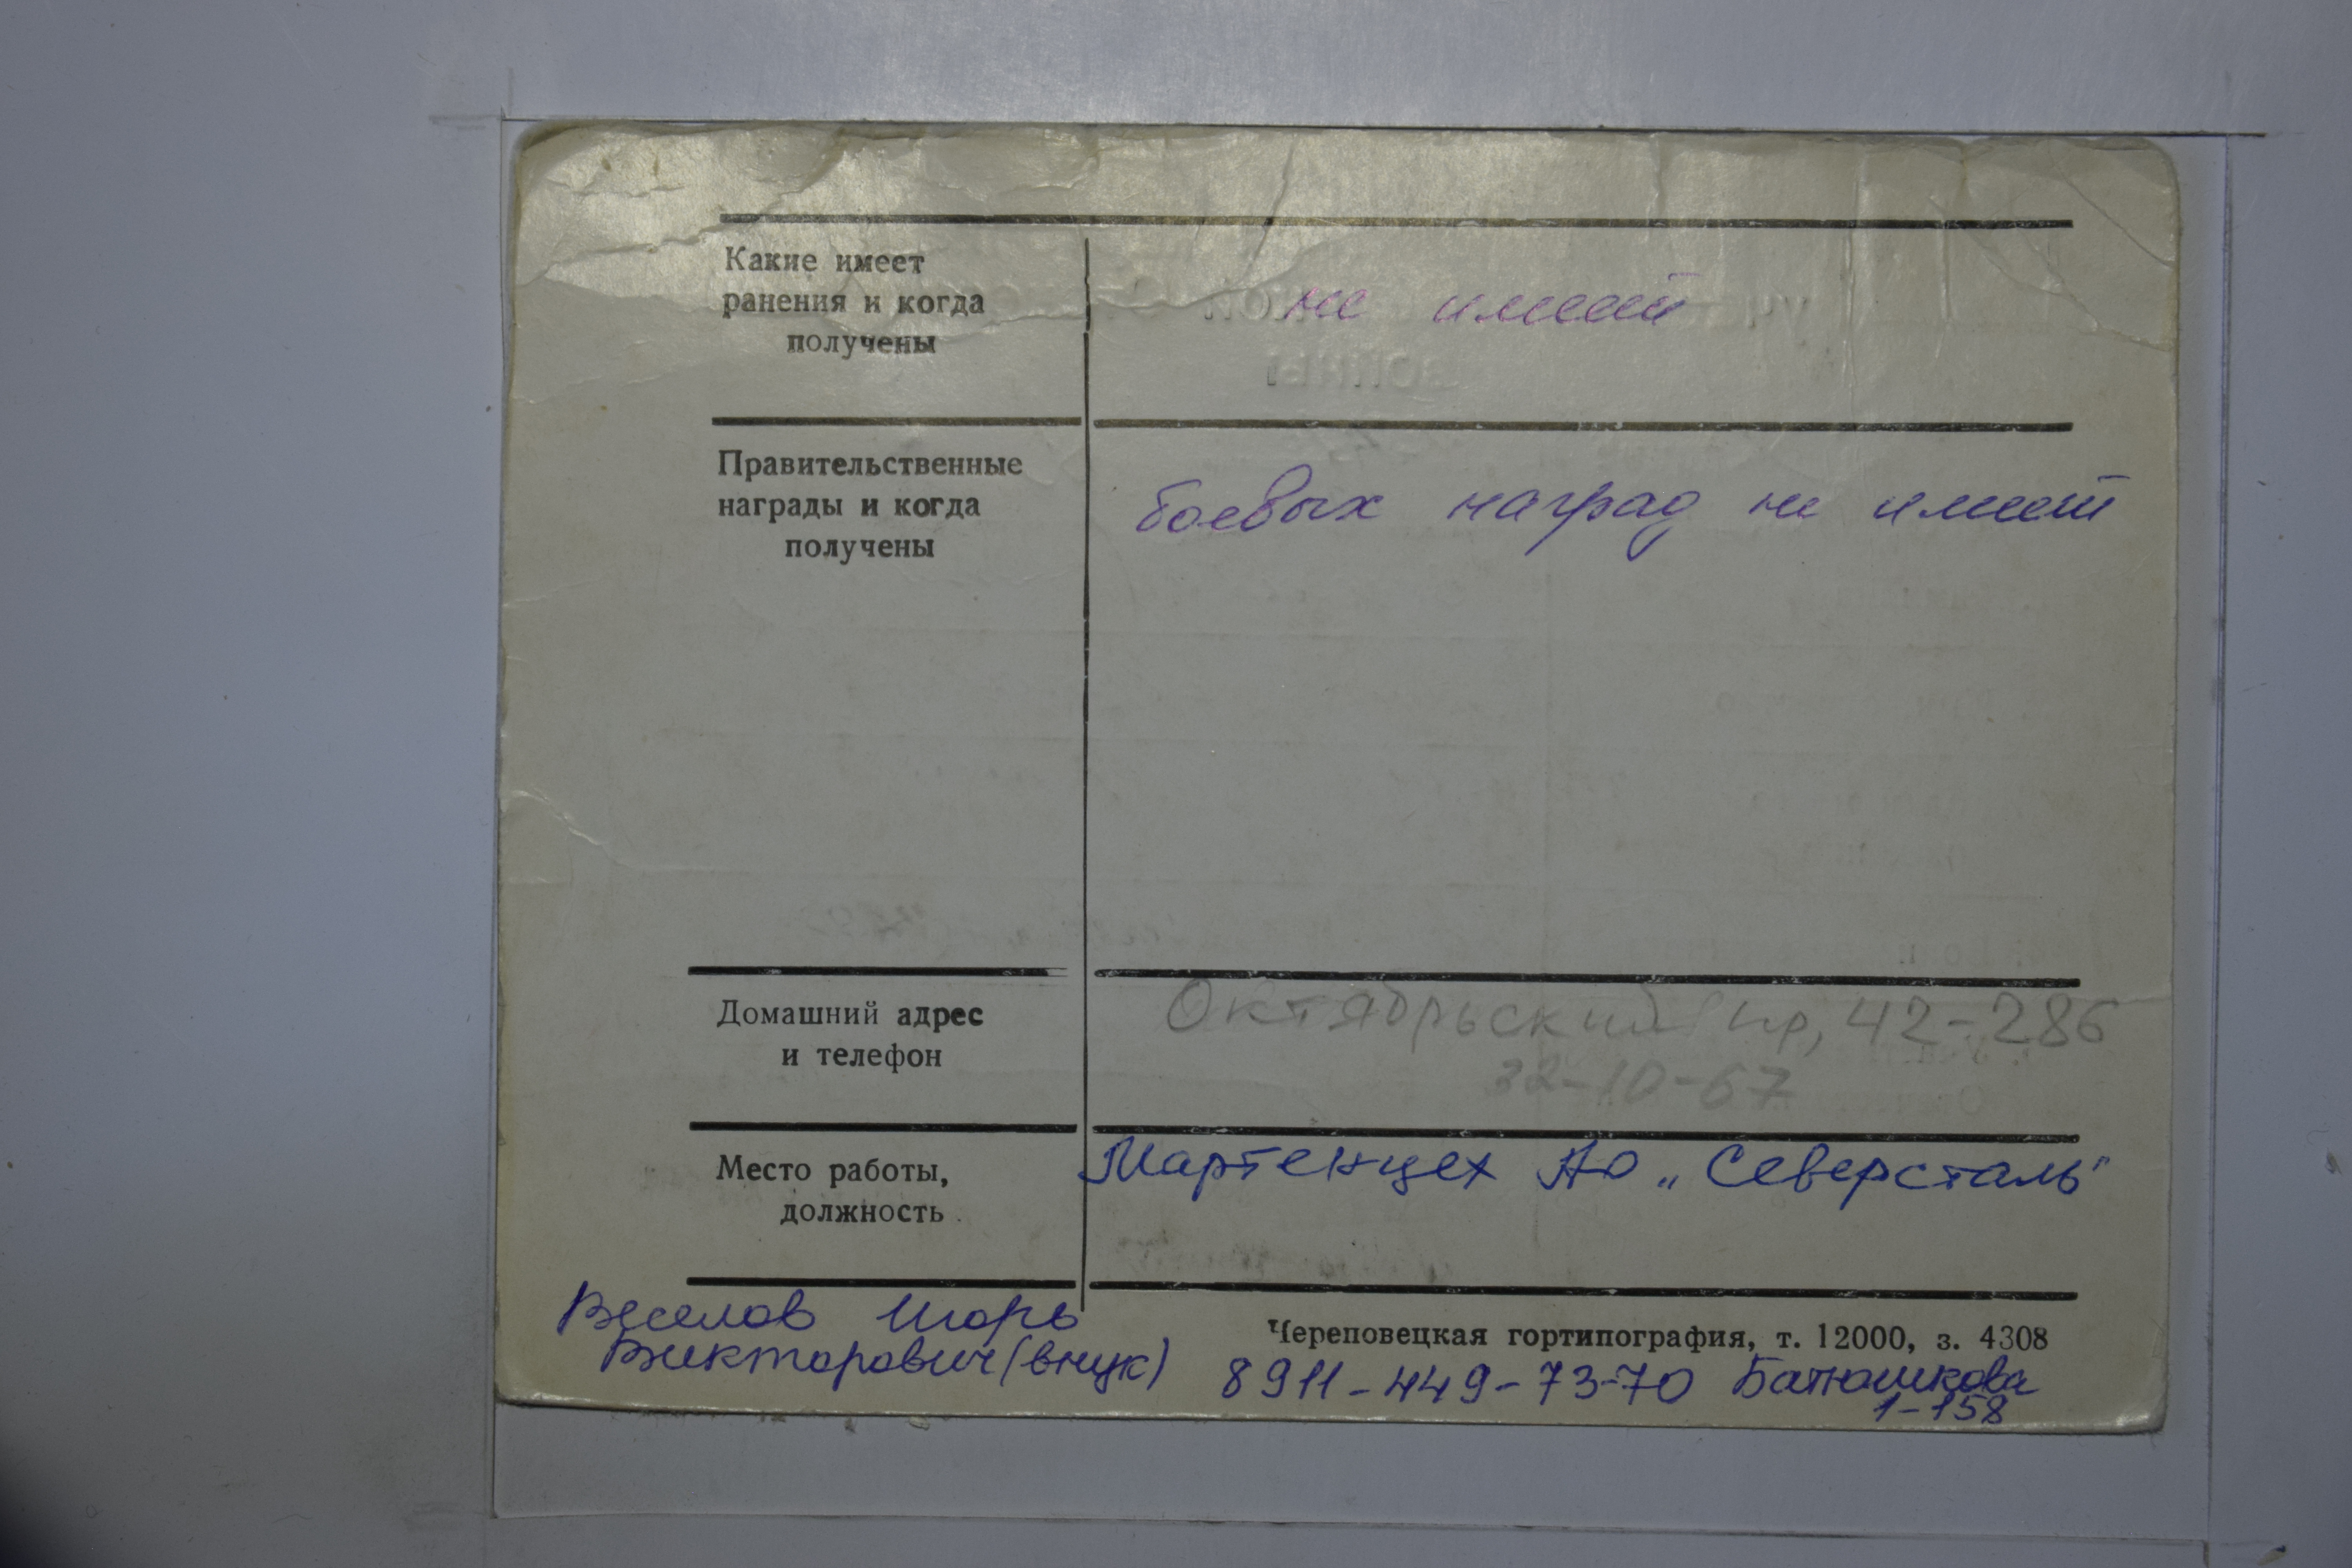 Какие имеет
ранения и когда
получены
не имеет
Правительственные
награды и когда
получены
боевых наград не имеет
Домашний адрес
и телефон
Октябрьский пр, 42-286
32-10-67
Место работы,
должность
Мартенцех АО „Северсталь"
Веселов Игорь
Викторович (внук)
Череповецкая гортипография, т. 12000, з. 4308
8911-449-73-70 Батюшкова
1-158